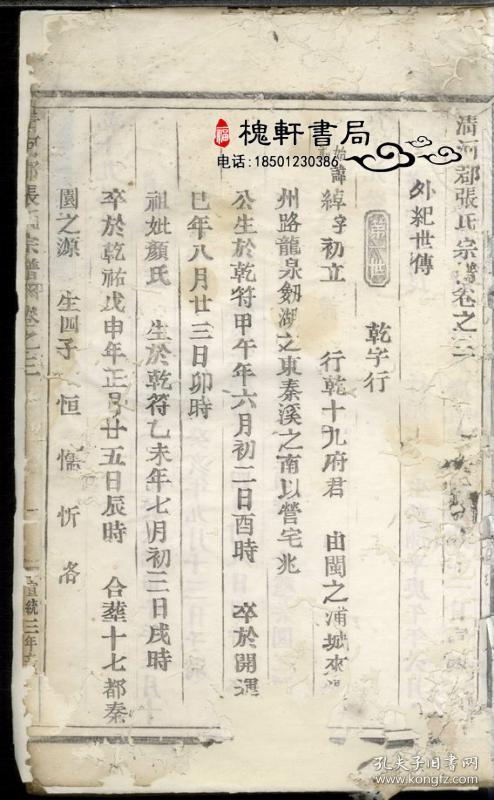 清河郡張氏宗譜卷之三
外紀世傳
乾字行
始 諱綽字初立 行乾十九府君 由閩之浦城來
州路龍泉劔湖之東秦溪之南以營宅兆
公生於乾符甲午年六月初二日酉時 卒於開運
巳年八月廿三日卯時
祖妣顏氏 生於乾符乙未年七月初三日戌時
卒於乾祐戊申年正月廿五日辰時 合葬十七都秦
園之源 生四子 恒 忻 洛
張氏宗譜 卷之三
宣統三年
槐軒書局
电话:18501230386
孔夫子旧书网
www.kongfz.com